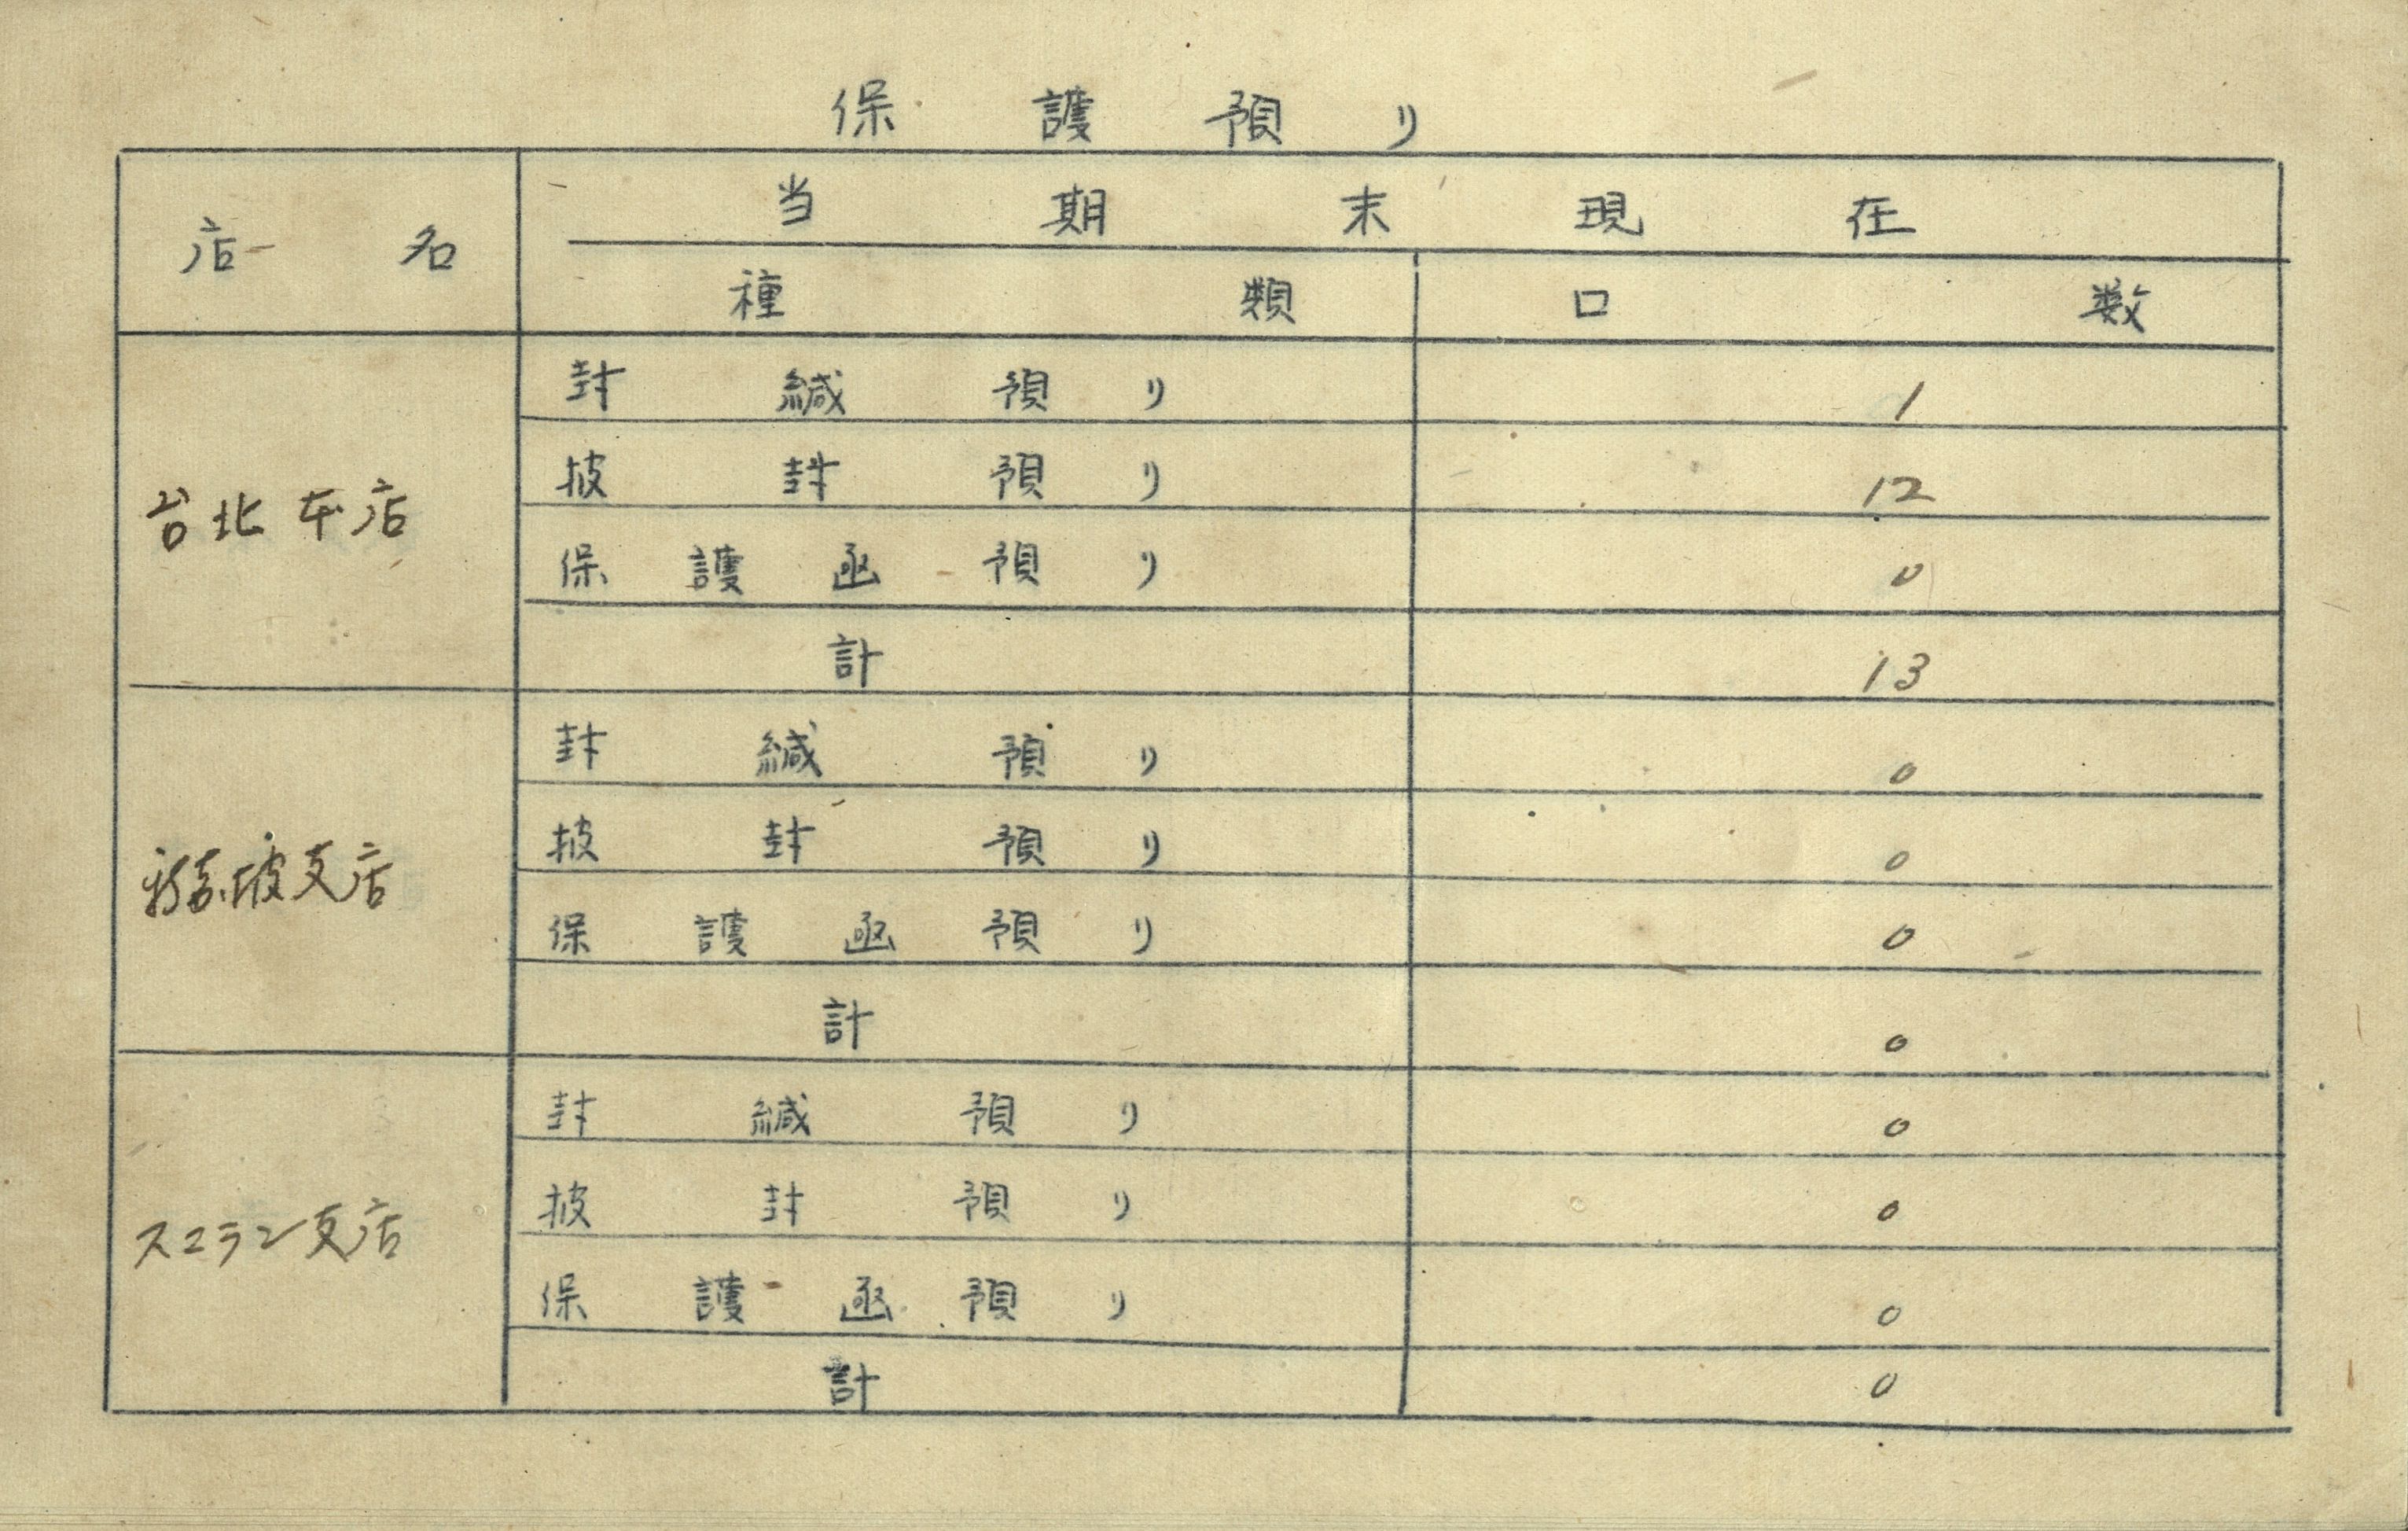 保護預り
店名 当期末現在
種類 口数
台北本店
封緘預り 1
披封預り 12
保護函預り 0
計 13
新嘉坡支店
封緘預り 0
披封預り 0
保護函預り 0
計 0
スマラン支店
封緘預り 0
披封預り 0
保護函預り 0
計 0